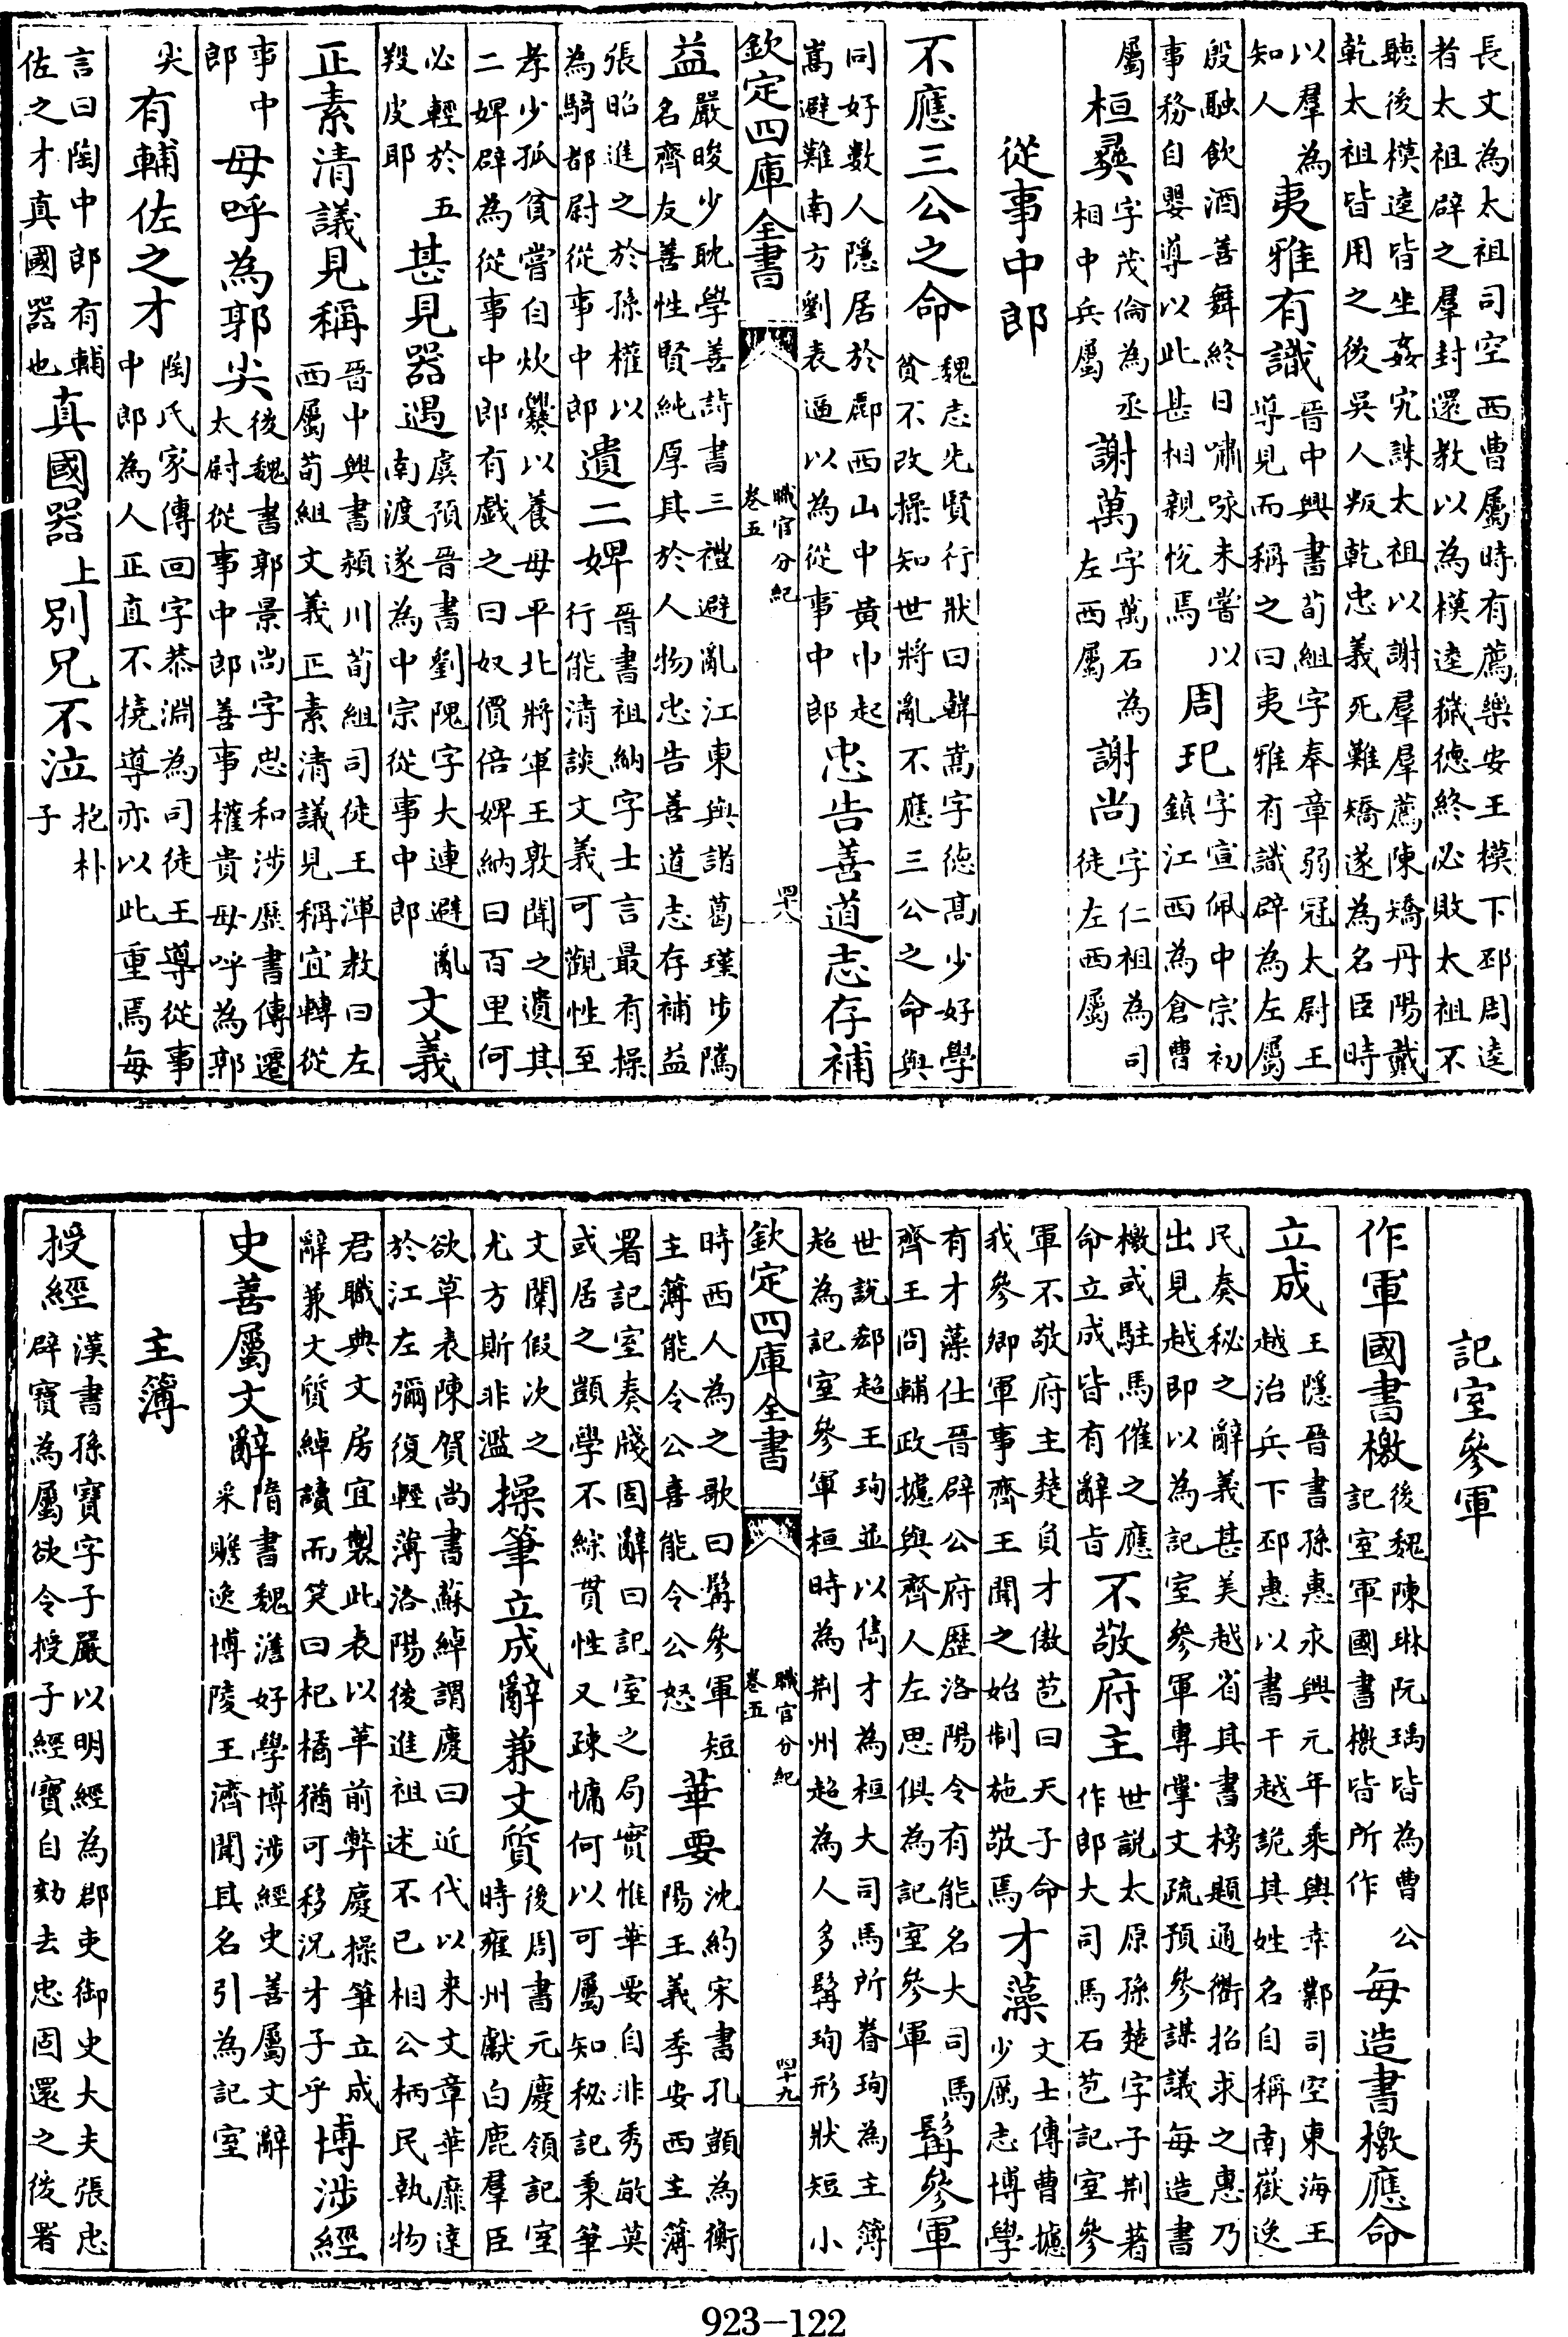 長文為太祖司空西曹屬時有薦樂安王模下邳周逵
者太祖辟之羣封還教以為模逵穢德終必敗太祖不
聽後模逵皆坐姦宄誅太祖以謝羣羣薦陳矯丹陽戴
乾太祖皆用之後吳人叛乾忠義死難矯遂為名臣時
以羣為知人 夷雅有識 晉中興書荀組字奉章弱冠太尉王導見而稱之曰夷雅有識辟為左屬
殷融飲酒善舞終日嘯咏未嘗以事務自嬰導以此甚相親悅焉 周玘 字宣佩中宗初鎮江西為倉曹
屬 桓彞 字茂倫為丞相中兵屬 謝萬 字萬石為左西屬 謝尚 字仁祖為司徒左西屬
從事中郎
不應三公之命 魏志先賢行狀曰韓嵩字徳髙少好學貧不改操知世將亂不應三公之命與
同好數人隱居於酈西山中黃巾起嵩避難南方劉表逼以為從事中郎 忠告善道志存補
欽定四庫全書 職官分紀 卷五 四八
益 嚴畯少耽學善詩書三禮避亂江東與諸葛瑾步隲名齊友善性賢純厚其於人物忠告善道志存補益
張昭進之於孫權以為騎都尉從事中郎 遺二婢 晉書祖納字士言最有操行能清談文義可觀性至
孝少孤貧嘗自炊爨以養母平北將軍王敦聞之遺其
二婢辟為從事中郎有戲之曰奴價倍婢納曰百里何
必輕於五羖皮耶 甚見器遇 虞預晉書劉隗字大連避亂南渡遂為中宗從事中郎 文義
正素清議見稱 晉中興書潁川荀組司徒王渾教曰左西屬荀組文義正素清議見稱宜轉從
事中郎 母呼為郭尖 後魏書郭景尚字思和涉歷書傳遷太尉從事中郎善事權貴母呼為郭
尖 有輔佐之才 陶氏家傳回字恭淵為司徒王導從事中郎為人正直不撓導亦以此重焉每
言曰陶中郎有輔佐之才真國器也 真國器 上 別兄不泣 抱朴子
記室參軍
作軍國書檄 後魏陳琳阮瑀皆為曹公記室軍國書檄皆所作 每造書檄應命
立成 王隱晉書孫惠永興元年乘輿幸鄴司空東海王越治兵下邳惠以書干越詭其姓名自稱南嶽逸
民奏秘之辭義甚美越省其書榜題通衢招求之惠乃
出見越即以為記室參軍專掌文疏預參謀議每造書
檄或駐馬催之應命立成皆有辭旨 不敬府主 世說太原孫楚字子荆著作郎大司馬石苞記室參
軍不敬府主楚負才傲苞曰天子命我參卿軍事齊王聞之始制施敬焉 才藻 文士傳曹攄少厲志博學
有才藻仕晉辟公府歷洛陽令有能名大司馬齊王冏輔政攄與齊人左思俱為記室參軍 髯參軍
世說郄超王珣並以雋才為桓大司馬所眷珣為主簿
超為記室參軍桓時為荆州超為人多髯珣形狀短小
欽定四庫全書 職官分紀 卷五 四十九
時西人為之歌曰髯參軍短主簿能令公喜能令公怒 華要 沈約宋書孔顗為衡陽王義季安西主簿
署記室奏牋固辭曰記室之局實惟華要自非秀敏莫
或居之顗學不綜貫性又疎慵何以可屬知秘記秉筆
文闈假次之尤方斯非濫 操筆立成辭兼文質 後周書元慶領記室時雍州獻白鹿羣臣
欲草表陳賀尚書蘇綽謂慶曰近代以来文章華靡逹
於江左彌復輕薄洛陽後進祖述不已相公柄民執物
君職典文房宜製此表以革前弊慶操筆立成
辭兼文質綽讀而笑曰杞橘猶可移況才子乎 博涉經
史善屬文辭 隋書魏澹好學博涉經史善屬文辭采贍逸博陵王濟聞其名引為記室
主簿
授經 漢書孫寶字子嚴以明經為郡吏御史大夫張忠辟寶為屬欲令授子經寶自劾去忠固還之後署
923-122